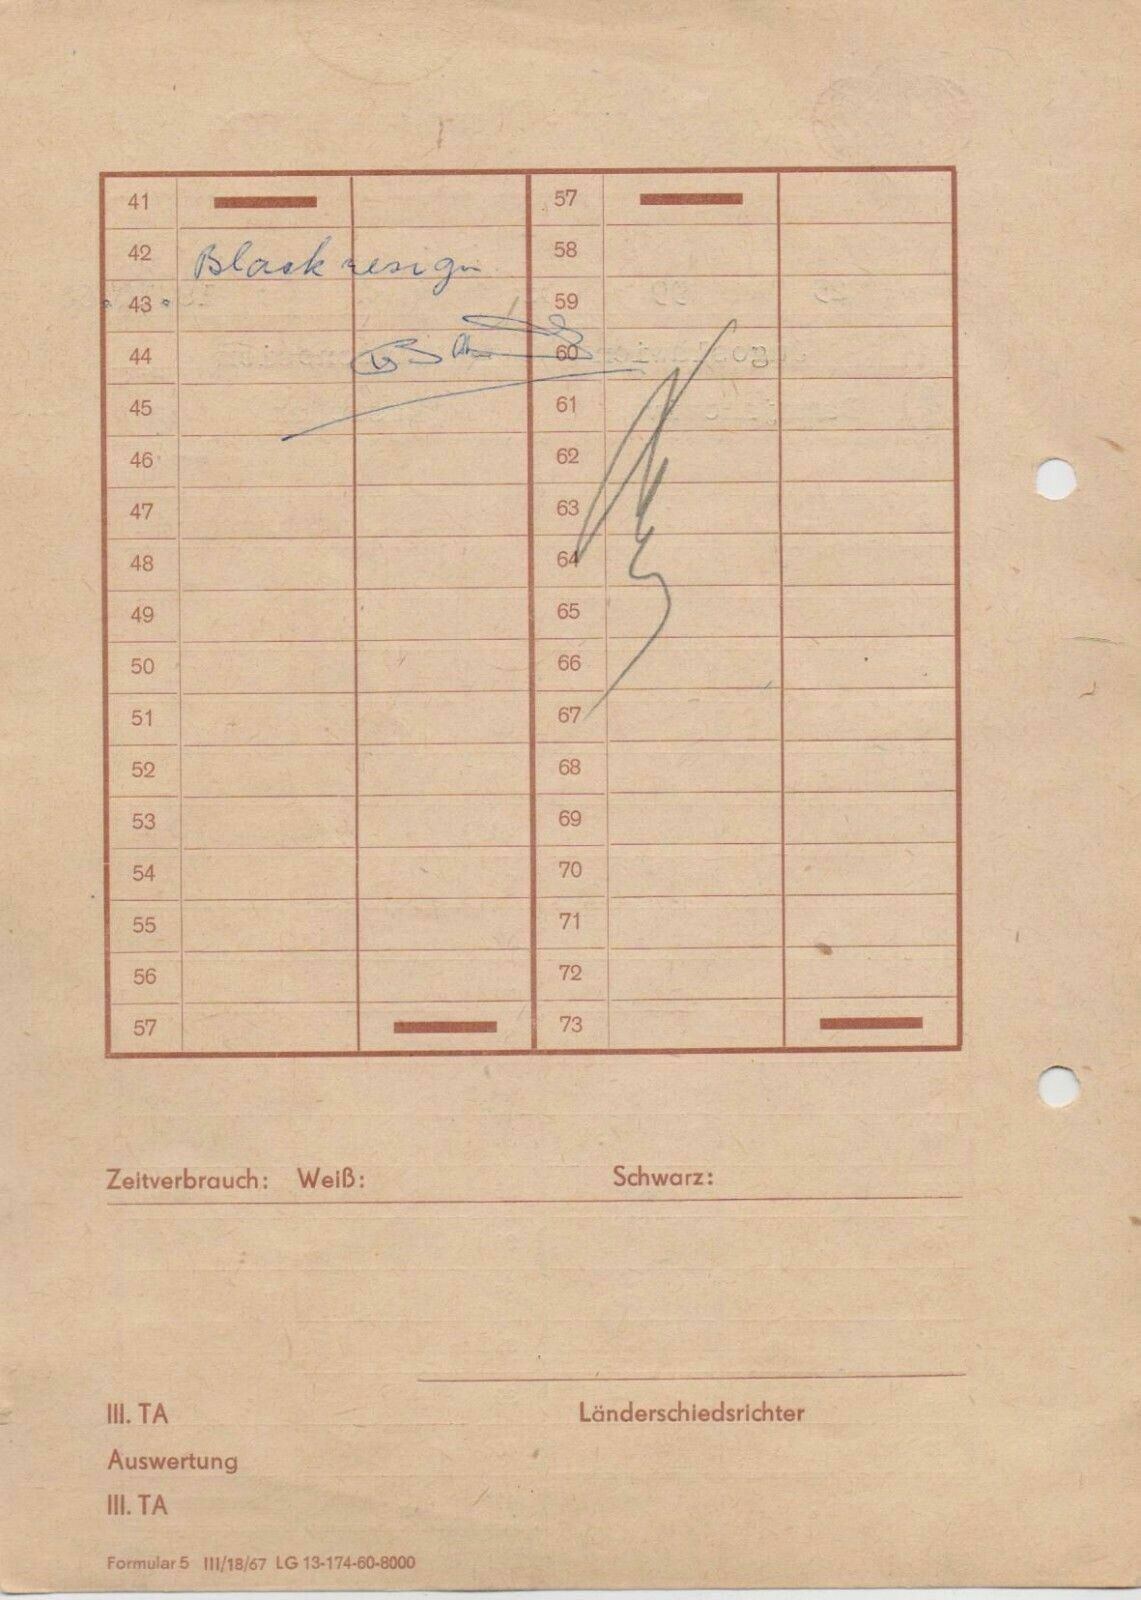 41 57
42 Black resign 58
43 59
44 60
45 61
46 62
47 63
48 64
49 65
50 66
51 67
52 68
53 69
54 70
55 71
56 72
57 73
Zeitverbrauch: Weiß: Schwarz:
III. TA Länderschiedsrichter
Auswertung
III. TA
Formular 5 III/18/67 LG 13-174-60-8000